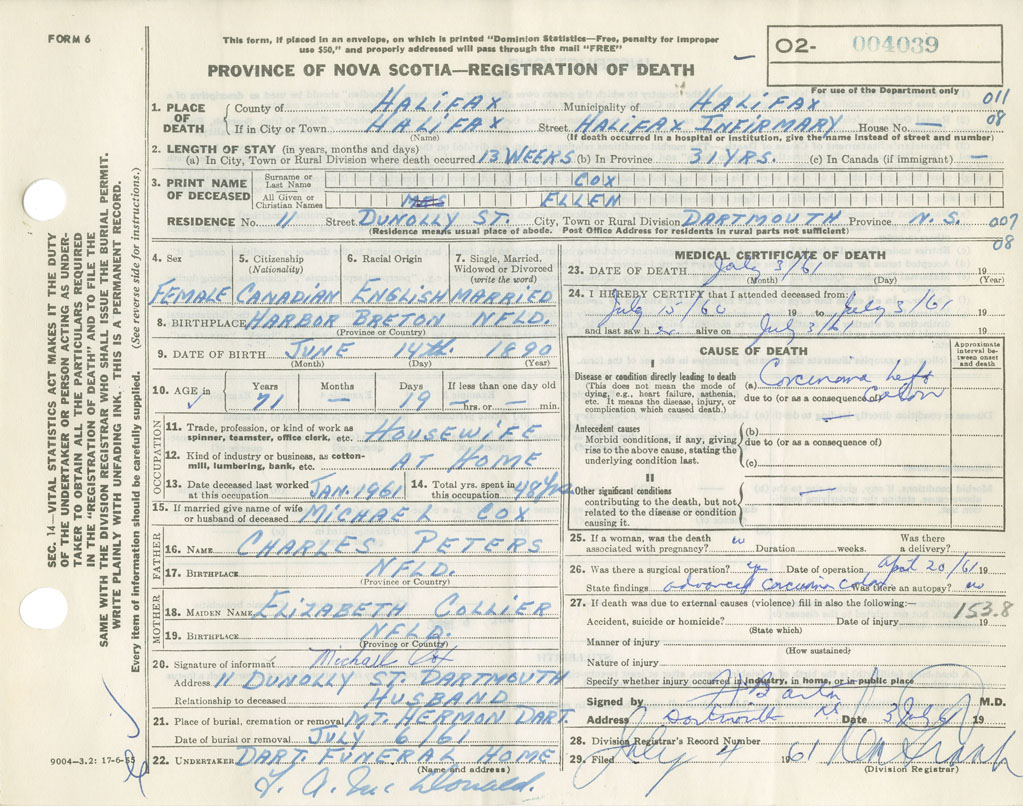 FORM 6
This form, if placed in an envelope, on which is printed "Dominion Statistics—Free, penalty for improper
use $50," and properly addressed will pass through the mail "FREE"
PROVINCE OF NOVA SCOTIA—REGISTRATION OF DEATH
O2- 004039
For use of the Department only
011
08
1. PLACE OF DEATH
County of HALIFAX Municipality of HALIFAX
If in City or Town HALIFAX Street HALIFAX INFIRMARY House No. —
(Name) (If death occurred in a hospital or institution, give the name instead of street and number)
2. LENGTH OF STAY (in years, months and days)
(a) In City, Town or Rural Division where death occurred 13 WEEKS (b) In Province 31 YRS. (c) In Canada (if immigrant) —
3. PRINT NAME OF DECEASED
Surname or Last Name COX
All Given or Christian Names MRS ELLEN
RESIDENCE No. 11 Street DUNOLLY ST. City, Town or Rural Division DARTMOUTH Province N.S.
(Residence means usual place of abode. Post Office Address for residents in rural parts not sufficient)
007
08
4. Sex FEMALE
5. Citizenship (Nationality) CANADIAN
6. Racial Origin ENGLISH
7. Single, Married, Widowed or Divorced (write the word) MARRIED
8. BIRTHPLACE HARBOR BRETON NFLD.
(Province or Country)
9. DATE OF BIRTH JUNE 14th. 1890
(Month) (Day) (Year)
10. AGE in Years 71 Months — Days 19 If less than one day old — hrs. or — min.
OCCUPATION
11. Trade, profession, or kind of work as spinner, teamster, office clerk, etc. HOUSEWIFE
12. Kind of industry or business, as cotton-mill, lumbering, bank, etc. AT HOME
13. Date deceased last worked at this occupation JAN. 1961
14. Total yrs. spent in this occupation 48 yrs
15. If married give name of wife or husband of deceased MICHAEL COX
FATHER
16. NAME CHARLES PETERS
17. BIRTHPLACE NFLD.
(Province or Country)
MOTHER
18. MAIDEN NAME ELIZABETH COLLIER
19. BIRTHPLACE NFLD.
(Province or Country)
20. Signature of informant Michael Cox
Address 11 DUNOLLY ST. DARTMOUTH
Relationship to deceased HUSBAND
21. Place of burial, cremation or removal MT. HERMON DART.
Date of burial or removal JULY 6/61
22. UNDERTAKER DART. FUNERAL HOME
(Name and address)
MEDICAL CERTIFICATE OF DEATH
23. DATE OF DEATH July 3/61 19
(Month) (Day) (Year)
24. I HEREBY CERTIFY that I attended deceased from:
July 15/60 19 to July 3/61 19
and last saw her alive on July 3/61 19
CAUSE OF DEATH
Approximate interval between onset and death
I
Disease or condition directly leading to death
(This does not mean the mode of dying, e.g., heart failure, asthenia, etc. It means the disease, injury, or complication which caused death.)
(a) Carcinoma left Colon
due to (or as a consequence of)
Antecedent causes
Morbid conditions, if any, giving rise to the above cause, stating the underlying condition last.
(b) —
due to (or as a consequence of)
(c)
II
Other significant conditions
contributing to the death, but not related to the disease or condition causing it.
—
25. If a woman, was the death associated with pregnancy? no Duration weeks. Was there a delivery?
26. Was there a surgical operation? yes Date of operation April 20/61 19
State findings advanced carcinoma colon Was there an autopsy? no
27. If death was due to external causes (violence) fill in also the following:—
153.8
Accident, suicide or homicide? Date of injury 19
(State which)
Manner of injury
(How sustained)
Nature of injury
Specify whether injury occurred in industry, in home, or in public place
Signed by M.D.
Address Dartmouth NS Date 3 July 61 19
28. Division Registrar's Record Number
29. Filed July 4 1961
(Division Registrar)
SEC. 14—VITAL STATISTICS ACT MAKES IT THE DUTY
OF THE UNDERTAKER OR PERSON ACTING AS UNDER-
TAKER TO OBTAIN ALL THE PARTICULARS REQUIRED
IN THE "REGISTRATION OF DEATH" AND TO FILE THE
SAME WITH THE DIVISION REGISTRAR WHO SHALL ISSUE THE BURIAL PERMIT.
WRITE PLAINLY WITH UNFADING INK. THIS IS A PERMANENT RECORD.
Every item of information should be carefully supplied. (See reverse side for instructions.)
9004—3.2: 17-6-55
F. A. Mc Donald.